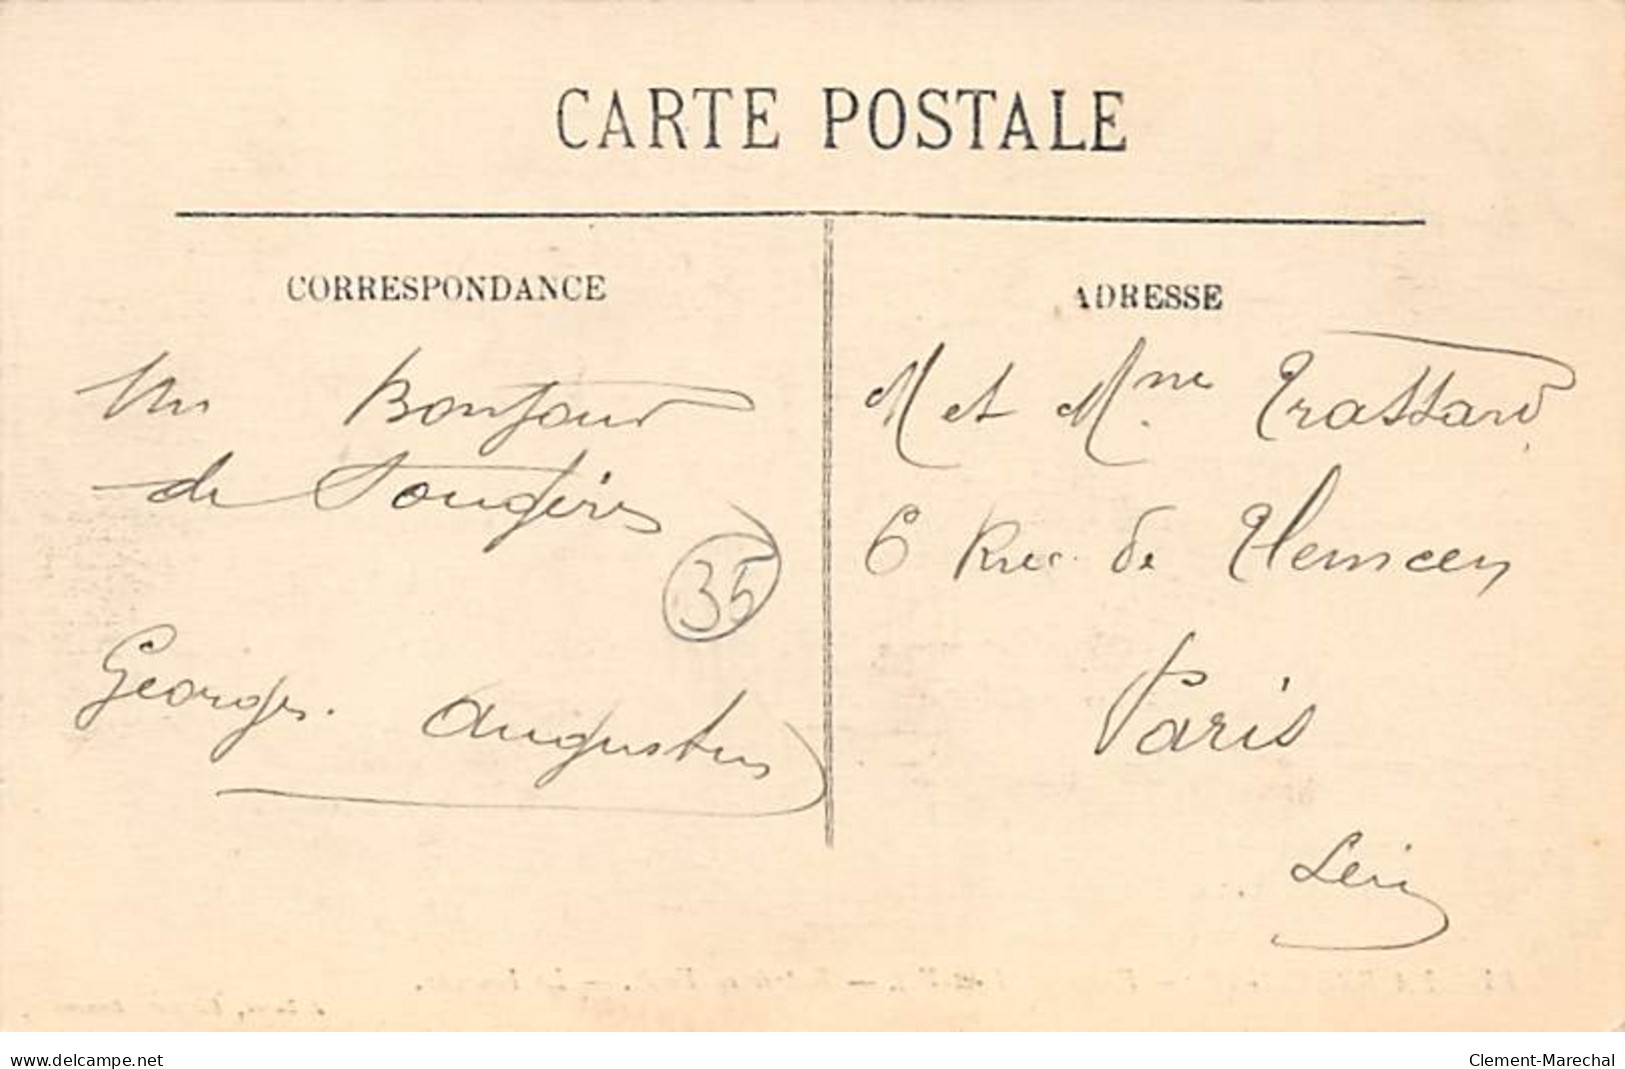 CARTE POSTALE
CORRESPONDANCE
Un Bonjour
de Fougères
35
Georges Augustus
ADRESSE
M et Mme Trassard
6 Rue de Tlemcen
Paris
www.delcampe.net
Clement-Marechal